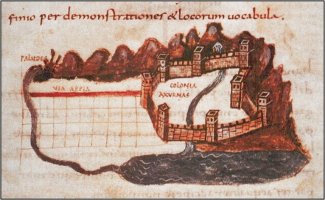 finio per demonstrationes & locorum uocabula.
VIA APPIA
COLONIA
AXURNAS